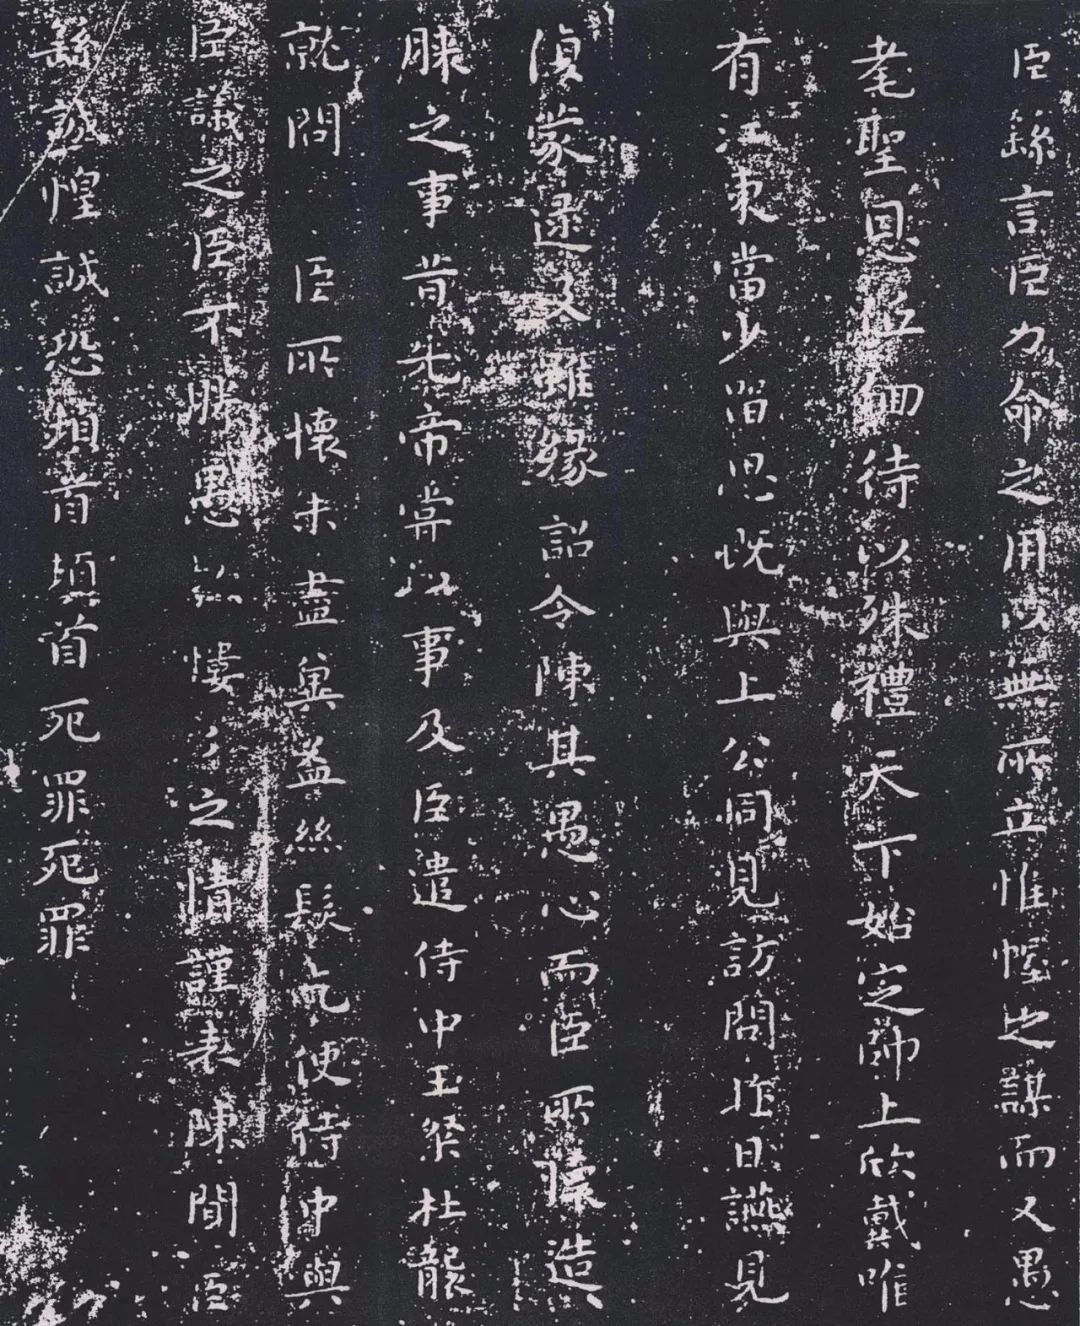 臣繇言臣力命之用以無所立惟幄之謀而又愚
耄聖恩低佪待以殊禮天下始定帥土欣戴唯
有江東當少留思既與上公同見訪問昨日讌見
復蒙逮及雖緣詔令陳其愚心而臣所懷造
膝之事昔先帝嘗以事及臣遣侍中王粲杜襲
就問臣所懷未盡奚益絲髮乞使侍中與
臣議之臣不勝愚款慺々之情謹表陳聞臣
繇誠惶誠恐頓首頓首死罪死罪